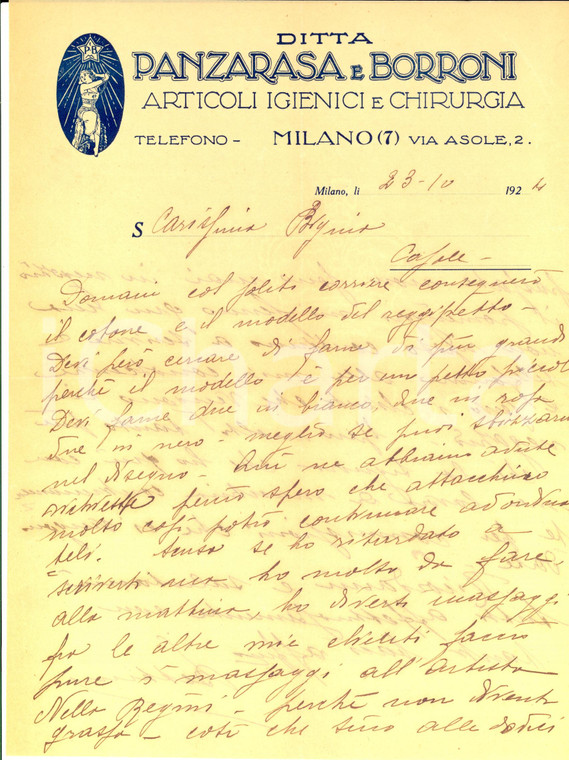 PB
DITTA
PANZARASA E BORRONI
ARTICOLI IGIENICI E CHIRURGIA
TELEFONO - MILANO (7) VIA ASOLE, 2.
Milano, li 23-10 1924
S Carissima Regina
Casale -
Domani col solito corriere consegnerò
il cotone e il modello del reggipetto -
Devi però cercare di farne di più grandi
perchè il modello è per un petto piccolo
Devi farne due in bianco, due in rosa
due in nero - meglio se puoi sbizzarri
nel disegno - ne abbiamo avute
richieste perciò spero che attacchino
molto così potrò continuare ad ordinar
teli. Scusa se ho ritardato a
scriverti ma ho molto da fare,
alla mattina, ho diversi massaggi
fra le altre mie clienti faccio
pure i massaggi all'Artista
Nella Regini - perchè non diventi
grassa - così che sino alle dodici